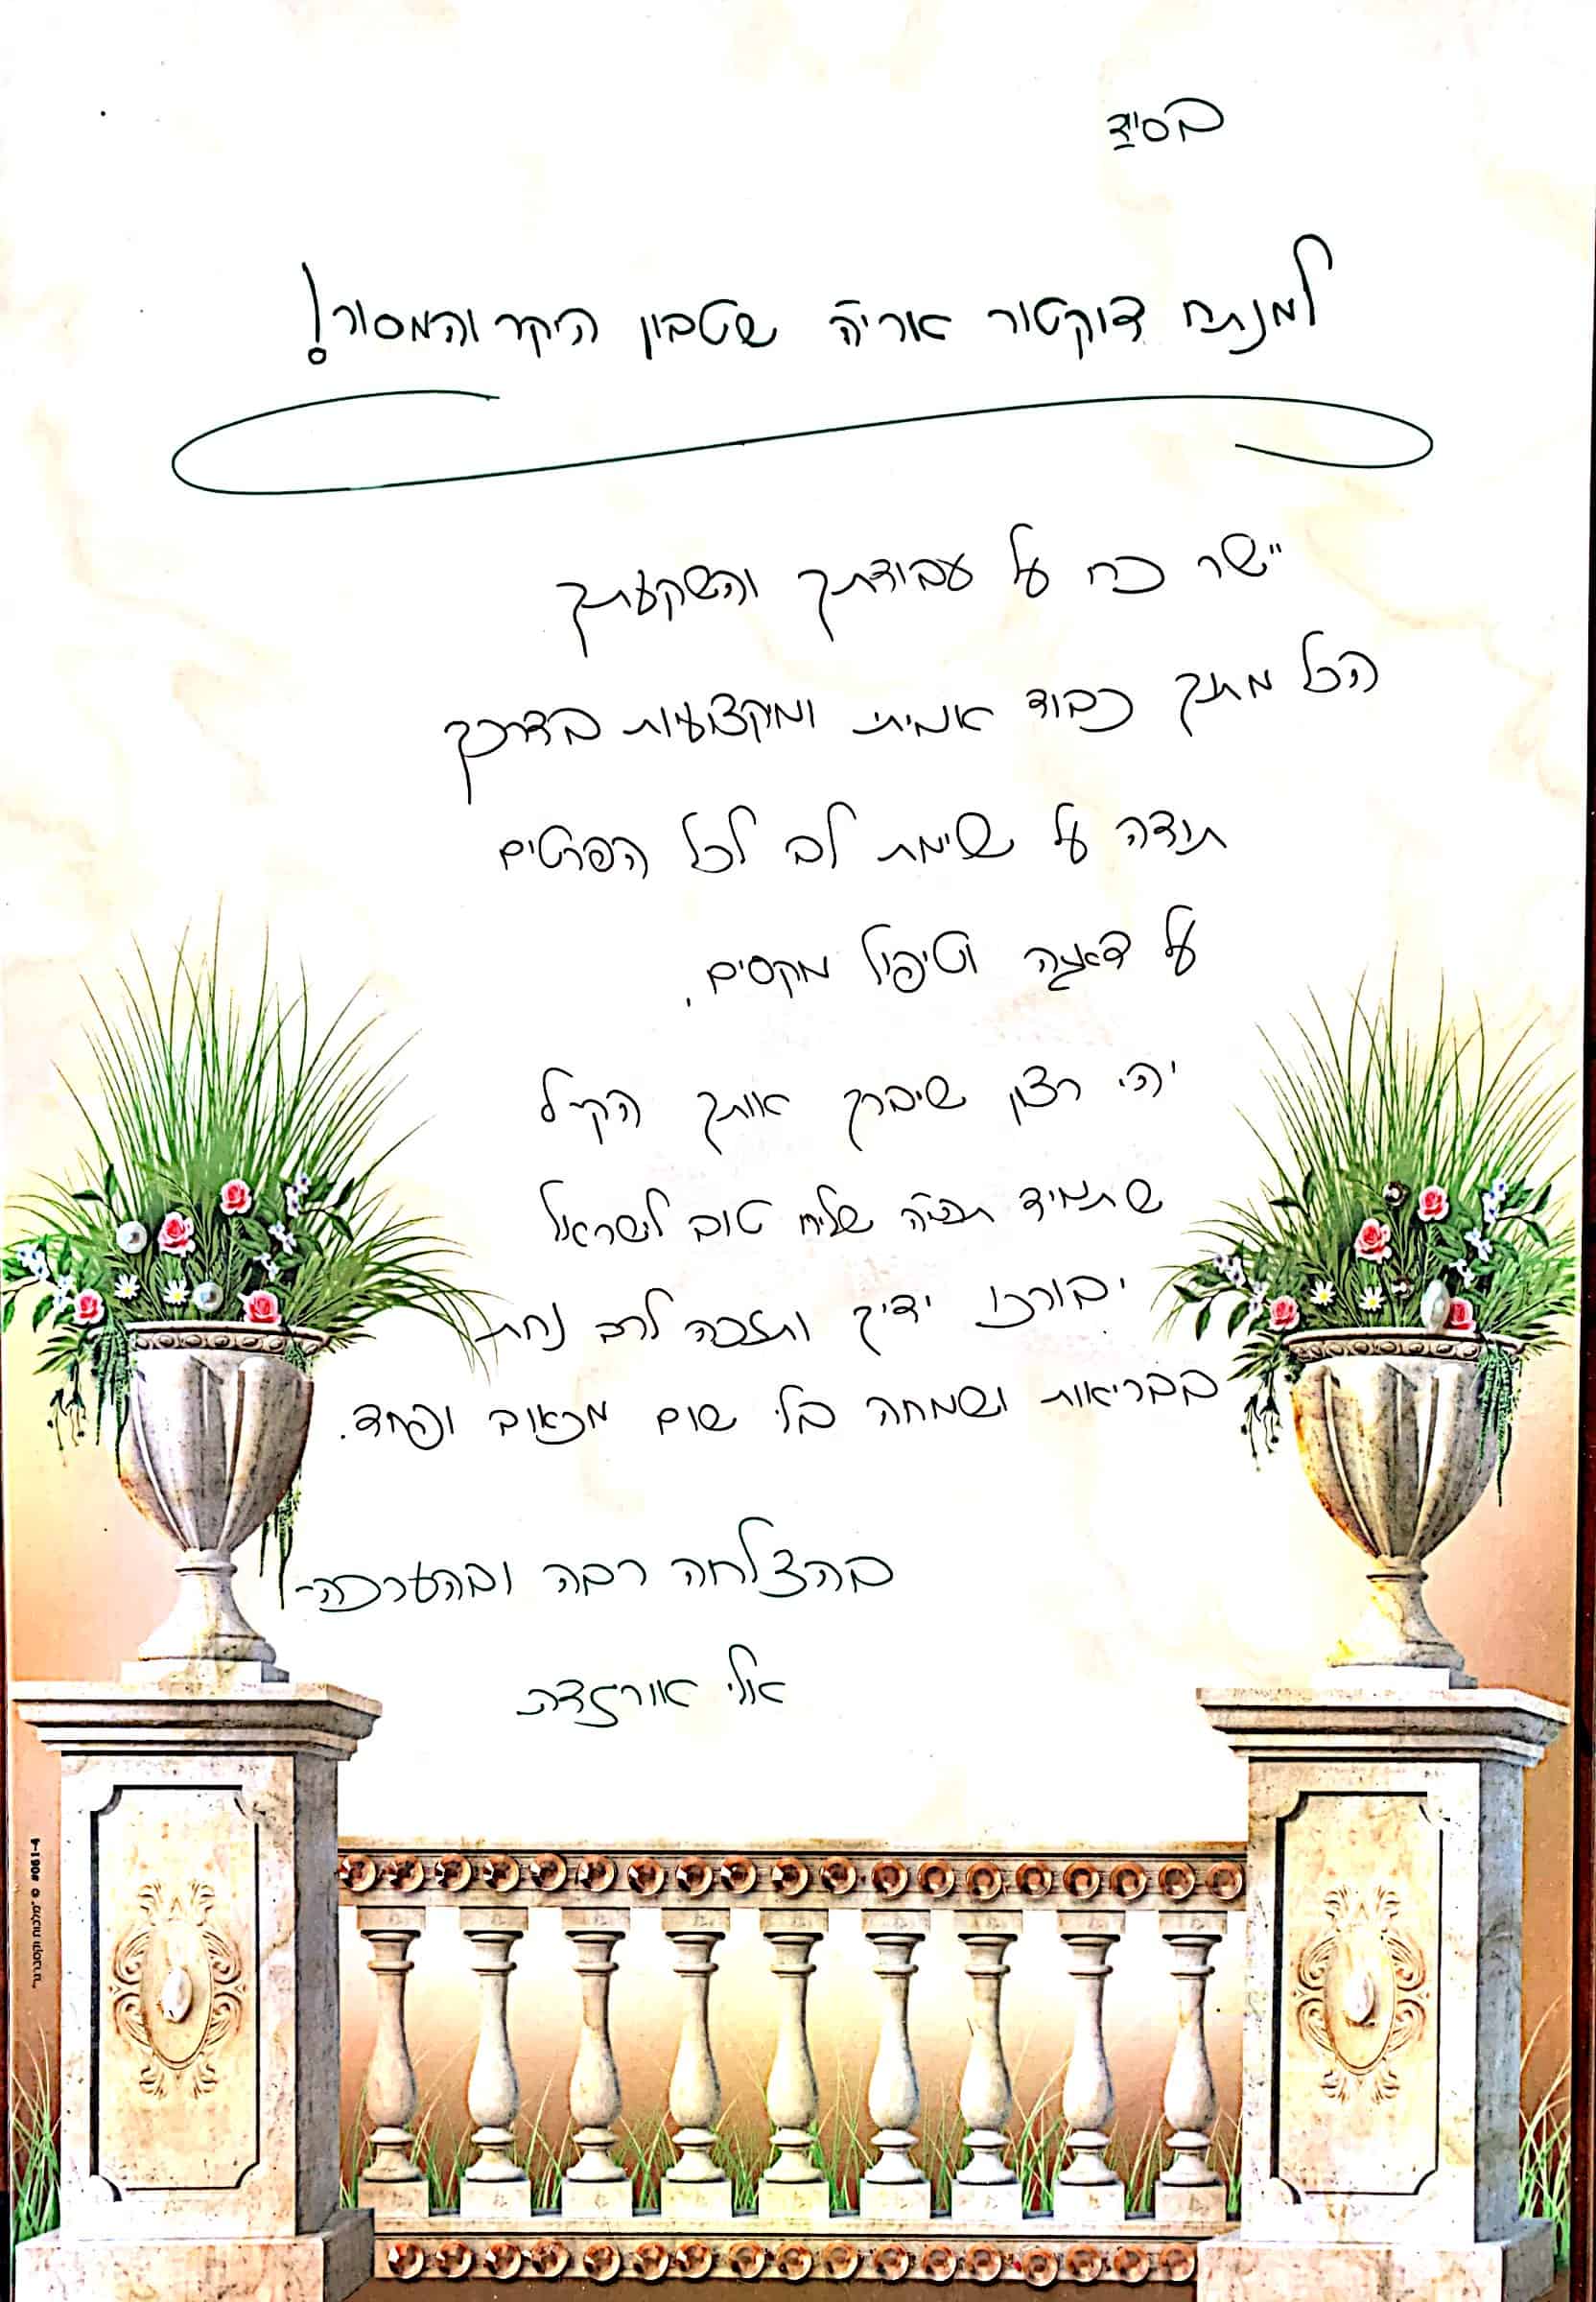 בס"ד
למנתח דוקטור אריה שטבון היקר והמסור!
יישר כח על עבודתך והשקעתך
הכל מתוך כבוד אמיתי ומקצועיות בדרכך
תודה על שימת לב לכל הפרטים
על דאגה וטיפול מקסים,
יהי רצון שיברך אותך הק-ל
שתמיד תהיה שליח טוב לישראל
יבורכו ידיך ותזכה לרב נחת
בבריאות ושמחה בלי שום מכאוב ופחד.
בהצלחה רבה ובהערכה-
אלי